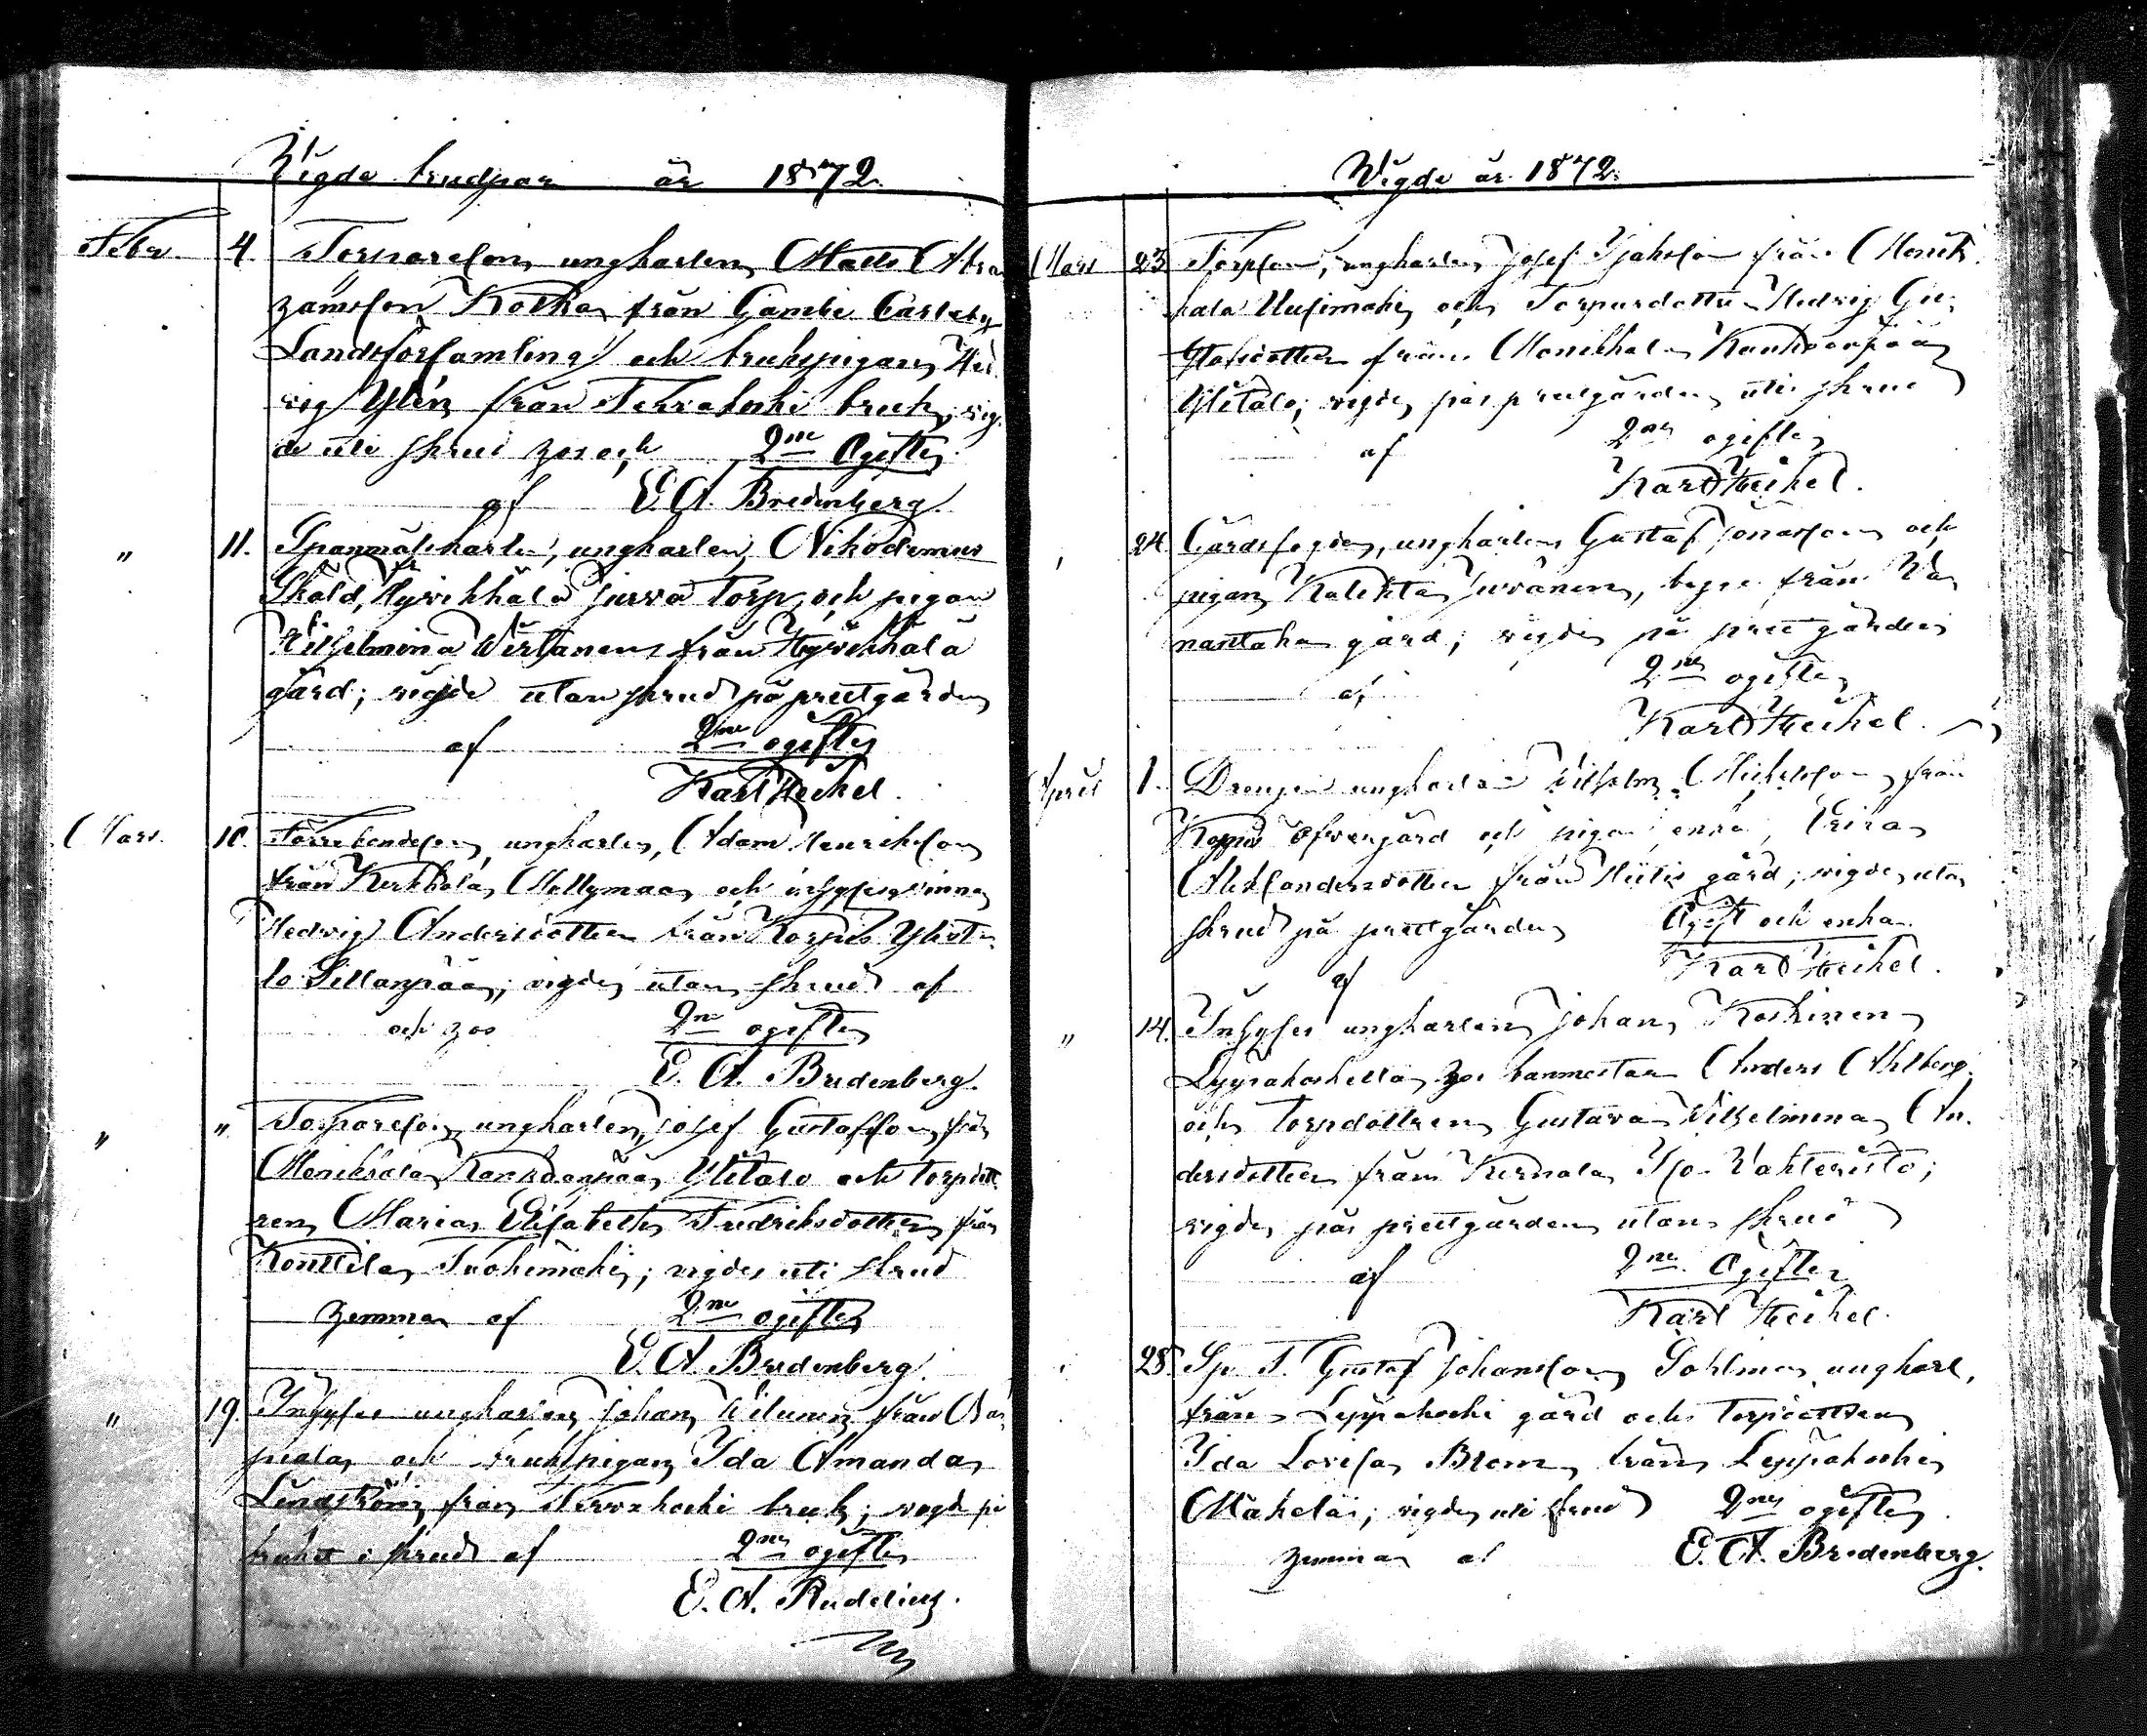 Vigde brudpar år 1872.
Febr. 4. Torparesonen, ungkarlen Matts Abra
hamsson Kotka från Gamle Carleby
Landsförsamling och brukspigan Hed
vig Ylén från Tervakoski bruk, vig
de uti skrud 2ne Ogifte
af E. A. Bredenberg
" 11. Spanmålskarlen, ungkarlen, Nikodemus
Sköld, Hyvikkälä Jurva torp, och pigan
Vilhelmina Virtanen från Hyvikkälä
gård; vigde utan skrud på prestgården
af 2ne ogifte
Karl Heikel.
Mars. 10. ungkarlen, Adam Henriksson
från Kerkkola Mällymaa och inhysesqvinnan
Hedvig Andersdotter från Korpis
Sillanpää; vigde utan skrud af
och 2ne ogifte
E. A. Bredenberg.
" " Torparesonen, ungkarlen, Josef Gustafsson från
Menikkala Kankaanpää Ylitalo och torpdott
ren Maria Elisabeth Fredriksdotter från
Konttila Tuohimäki; vigde uti skrud
hemma af 2ne ogifte
E. A. Bredenberg.
" 19. Inhyses ungkarlen Johan Vilunen från
och brukspigan Ida Amanda
Lindström från Tervakoski bruk; vigde på
bruket i skrud af 2ne ogifte
E. A. Rudelius.
Wigde år 1872.
Mars 23 Torpson, ungkarlen Josef Isaksson från Menik
kala Uusimäki och Torparedottren Hedvig Gu
stafsdotter från Menikkala Kankaanpää
Ylitalo; vigde på prestgården uti skrud
af 2ne ogifte
Karl Heikel.
24 Gårdsfogden, ungkarlen Gustaf Jonasson och
pigan Juvänen, begge från Va
nantaka gård; vigde på prestgården
af 2ne ogifte
Karl Heikel.
April 1. Drengen ungkarlen Vilhelm Michelsson från
Korpis Öfvergård och pigan, enka, Erika
Alexandersdotter från gård; vigde utan
skrud på prestgården Ogift och enka.
af Karl Heikel.
" 14. Inhyses ungkarlen Johan Koskinen
Leppäkoskella, hos banmästar Anders Ahlberg
och torpdottren Gustava Vilhelmina An
dersdotter från Kernala Iso Vahteristo;
vigde på prestgården utan skrud
af 2ne Ogifte
Karl Heikel.
28. Gustaf Johansson Sohlman ungkarl,
från Leppäkoski gård och torpdottren
Ida Lovisa Blom, från Leppäkoski
Mäkelä; vigde uti skrud 2ne ogifte
hemma af E. A. Bredenberg.